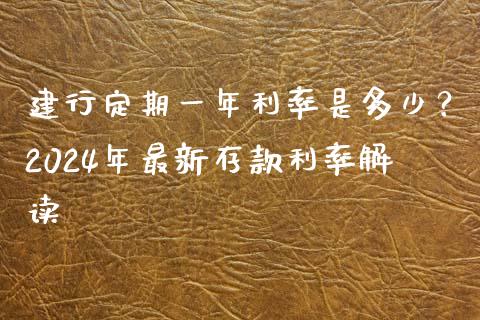 建行定期一年利率是多少？
2024年最新存款利率解
读